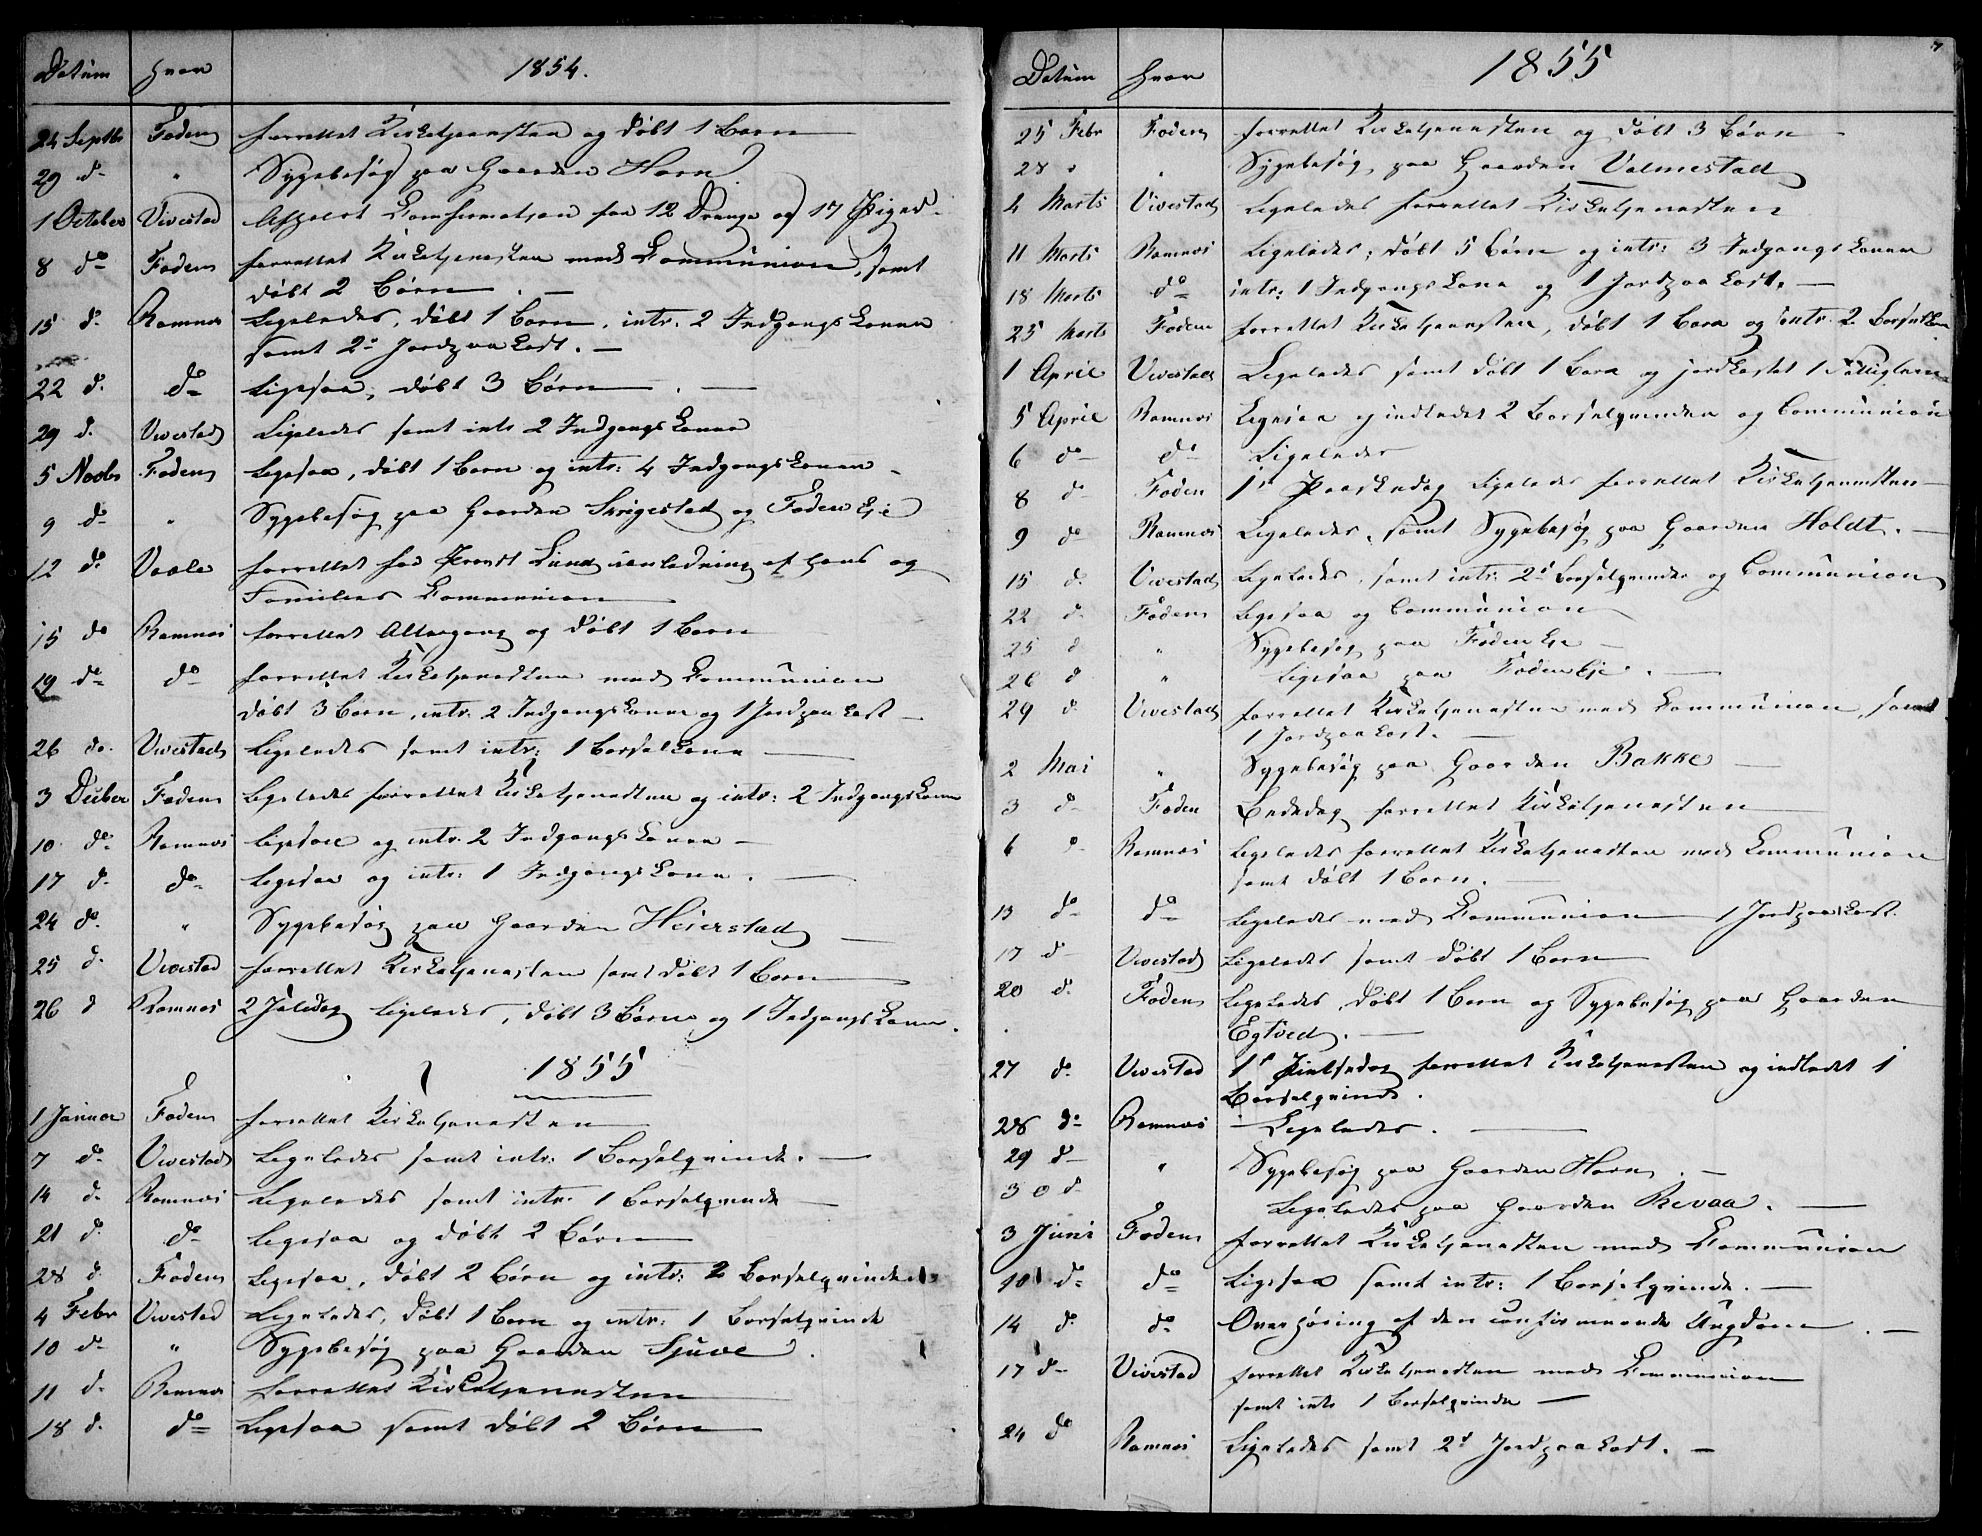 Datum hvor 1854.
24 Septbr Foden forrettet Kirketjenesten og döbt 1 Barn
29 do " Sygebesög paa Gaarden Horn
1 October Vivestad Afholdt Confirmation for 12 Drenge og 17 Piger.
8 do Foden forrettet Kirketjenesten med Communion, samt
döbt 2 Börn
15 do Ramnæs Ligeledes, döbt 1 Barn, intr. 2 Indgangskoner
samt 2de Jordpaakast.
22 do do Ligesaa, döbt 3 Börn
29 do Vivestad Ligeledes samt intr 2 Indgangskoner
5 Novbr Foden Ligesaa, döbt 1 Barn og intr: 4 Indgangskoner
9 do " Sygebesög paa Gaarden Svigestad og Foden Eje
12 do Vaale forrettet for Provst Lund i anledning af hans og
Families Communion
15 do Ramnæs forrettet Altergang og döbt 1 Barn
19 do do forrettet Kirketjenesten med Communion
döbt 3 Börn, intr. 2 Indgangskoner og 1 Jordpaakast
26 do Vivestad Ligeledes samt intr: 1 Barselkone
3 Decber Foden Ligeledes forrettet Kirketjenesten og intr: 2 Indgangskoner
10 do Ramnæs Ligesaa og intr. 2 Indgangskoner
17 do do Ligesaa og intr: 1 Indgangskone.
24 do " Sygebesög paa Gaarden Heierstad
25 do Vivestad forrettet Kirketjenesten samt döbt 1 Barn
26 d Ramnæs 2 Juledag Ligeledes, döbt 3 Börn og 1 Indgangskone.
1855
1 Januar Foden forrettet Kirketjenesten
7 do Vivestad Ligeledes samt intr: 1 Barselqvinde.
14 do Ramnæs Ligeledes samt intr. 1 Barselqvinde
21 do do Ligesaa og döbt 2 Börn
28 d. Foden Ligesaa, döbt 2 Börn og intr: 2 Barselqvinder
4 Febr Vivestad Ligeledes, döbt 1 Barn og intr: 1 Barselqvinde
10 do " Sygebesög paa Gaarden Sjuve.
11 do Ramnæs forrettet Kirketjenesten
18 d. do Ligesaa samt döbt 2 Börn
Datum hvor 1855 7
25 Febr Foden forrettet Kirketjenesten og döbt 3 Börn
28 " " Sygebesög paa Gaarden Valmestad
4 Marts Vivestad Ligeledes forrettet Kirketjenesten
11 Marts Ramnæs Ligeledes, döbt 5 Börn og intr: 3 Indgangskoner
18 Marts do intr: 1 Indgangskone og 1 Jordpaakast.
25 Marts Foden forrettet Kirketjenesten, döbt 1 Barn og intr. 2
1 April Vivestad Ligeledes samt döbt 1 Barn og jordkastet 1
5 April Ramnæs Ligesaa og indledet 2 Barselqvinder og Communion
6 do do Ligeledes
8 do Foden 1st Paaskedag Ligeledes forrettet Kirketjenesten
9 do Ramnæs Ligeledes, samt Sygebesög paa Gaarden Holdt.
15 d. Vivestad Ligeledes, samt intr: 2de Barselqvinder og Communion
22 do Foden Ligesaa og Communion
25 d " Sygebesög paa Foden Eje
26 d " Ligesaa paa Foden Eje.
29 d. Vivestad forrettet Kirketjenesten med Communion, samt
1 Jordpaakast.
2 Mai " Sygebesög paa Gaarden Bakke
3 do Foden Bededag forrettet Kirketjenesten
6 do Ramnæs Ligeledes forrettet Kirketjenesten med Communion
samt döbt 1 Barn.
13 do do Ligeledes med Communion 1 Jordpaakast.
17 do Vivestad Ligeledes samt döbt 1 Barn
20 do Foden Ligeledes döbt 1 Barn og Sygebesög paa Gaarden
Egtved.
27 do Vivestad 1st Pintsedag forrettet Kirketjenesten og indledet 1
Barselqvinde.
28 do Ramnæs Ligeledes.
29 do " Sygebesög paa Gaarden Horn.
30 d. " Ligeledes paa Gaarden Revaa.
3 Juni Foden forrettet Kirketjenesten med Communion
10 do do Ligesaa samt intr: 1 Barselqvinde.
14 do do Overhöring af den confirmerende Ungdom.
17 do Vivestad forrettet Kirketjenesten med Communion
samt intr 1 Barselqvinde
24 do Ramnæs Ligeledes samt 2de Jordpaakast.